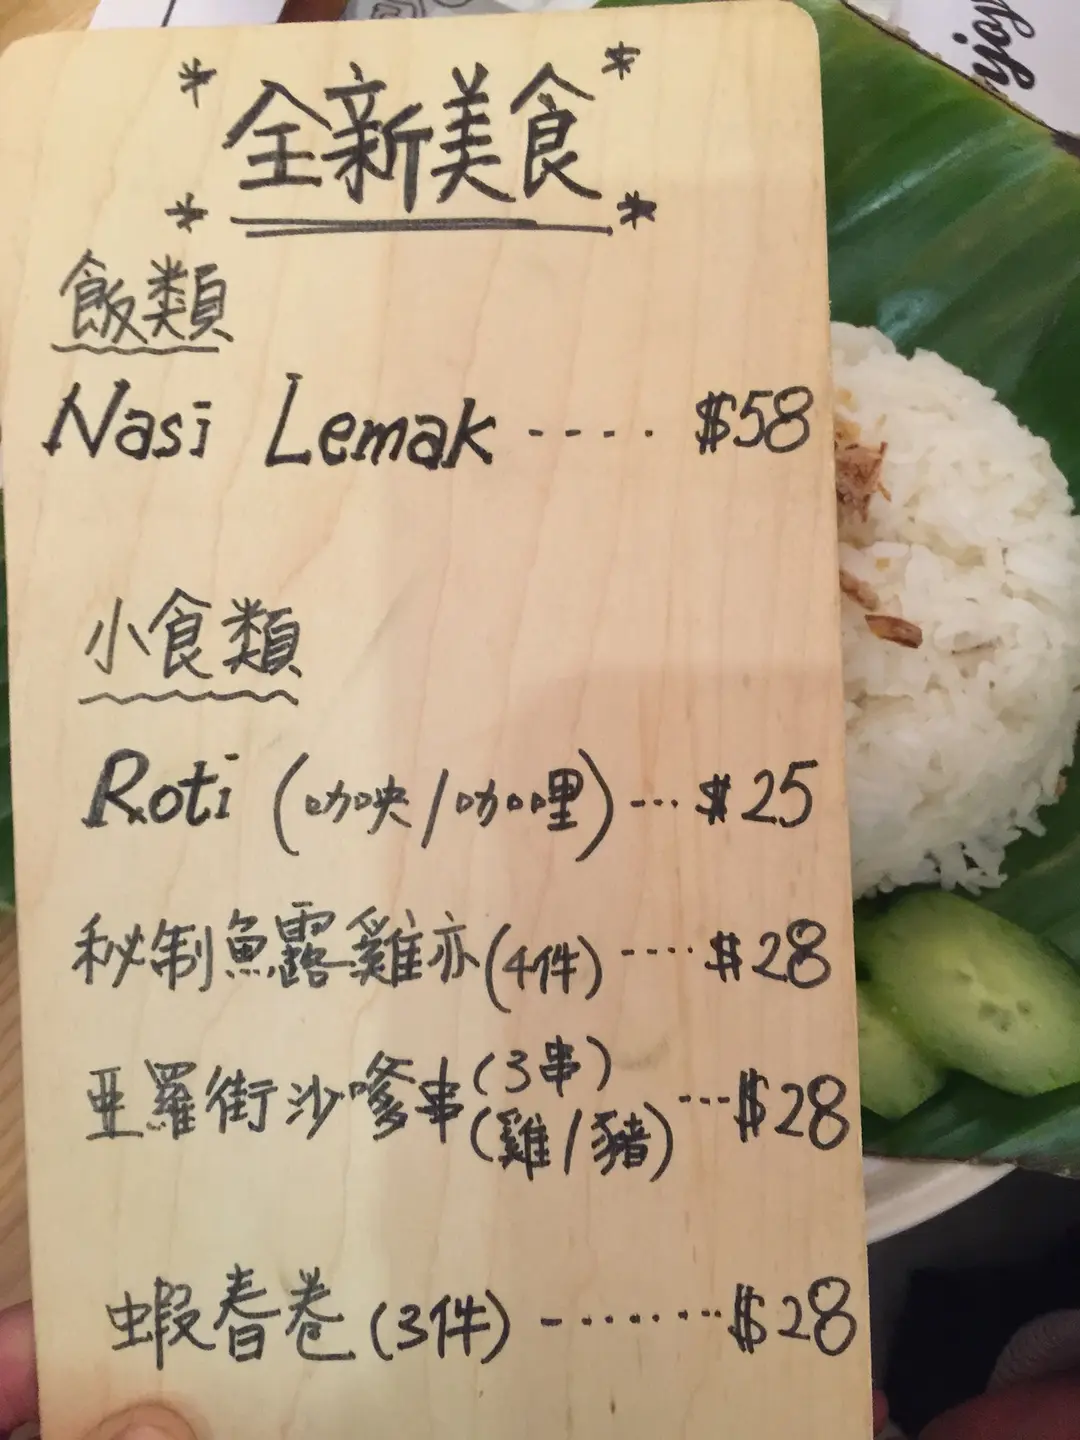 全新美食
飯類
Nasi Lemak ---- $58
小食類
Roti (咖央/咖哩) --- $25
秘制魚露雞亦(4件) ---- $28
亜羅街沙嗲串(3串)(雞/豬) --- $28
蝦春卷(3件) ------- $28